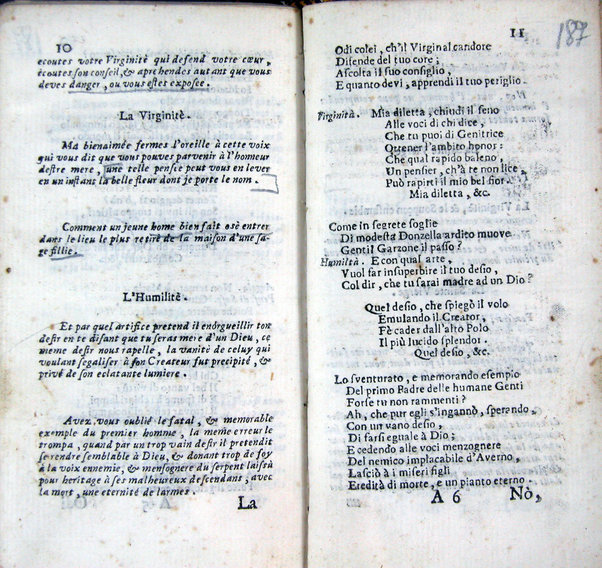 10
ecoutes votre Virginitè qui defend votre cœur,
ècoutes son conseil, & aprehendes autant que vous
deves danger, ou vous estes exposee.
La Virginitè.
Ma bienaimèe fermes l'oreille à cette voix
qui vous dit que vous pouves parvenir à l'honneur
d'estre mere, une telle pensée peut vous en lever
en un instant la belle fleur dont je porte le nom.
Comment un jeune home bien fait osè entrer
dans le lieu le plus retirè de la maison d'une sa-
ge fillie.
L'Humilitè.
Et par quel artifice pretend il enorgueillir ton
desir en te disant que tu seras mere d'un Dieu, ce
meme desir nous rapelle, la vanitè de celuy qui
voulant segaliser à son Createur fut precipitè, &
privè de son eclatante lumiere.
Avez vous oublié le fatal, & memorable
exemple du premier homme, la meme erreur le
trompa, quand par un trop vain desir il pretendit
se rendre semblable à Dieu, & donant trop de foy
à la voix ennemie, & mensognere du serpent laissà
pour heritage à ses malheureux descendans, avec
la mort, une eternitè de larmes.
La
11
187
Odi colei, ch'il Virginal candore
Difende del tuo core;
Ascolta il suo consiglio,
E quanto devi, apprendi il tuo periglio.
Virginità. Mia diletta, chiudi il seno
Alle voci di chi dice,
Che tu puoi di Genitrice
Ottener l'ambito honor:
Che qual rapido baleno,
Un pensier, ch'à te non lice,
Può rapirti il mio bel fior.
Mia diletta, &c.
Come in segrete soglie
Di modesta Donzella ardito muove
Gentil Garzone il passo?
Humiltà. E con qual arte,
Vuol far insuperbire il tuo desio,
Col dir, che tu sarai madre ad un Dio?
Quel desio, che spiegò il volo
Emulando il Creator,
Fè cader dall'alto Polo
Il più lucido splendor.
Quel desio, &c.
Lo sventurato, e memorando esempio
Del primo Padre delle humane Genti
Forse tu non rammenti?
Ah, che pur egli s'ingannò, sperando
Con un vano desio,
Di farsi eguale à Dio;
E cedendo alle voci menzognere
Del nemico implacabile d'Averno,
Lasciò à i miseri figli
Eredità di morte, e un pianto eterno.
A 6 Nò,